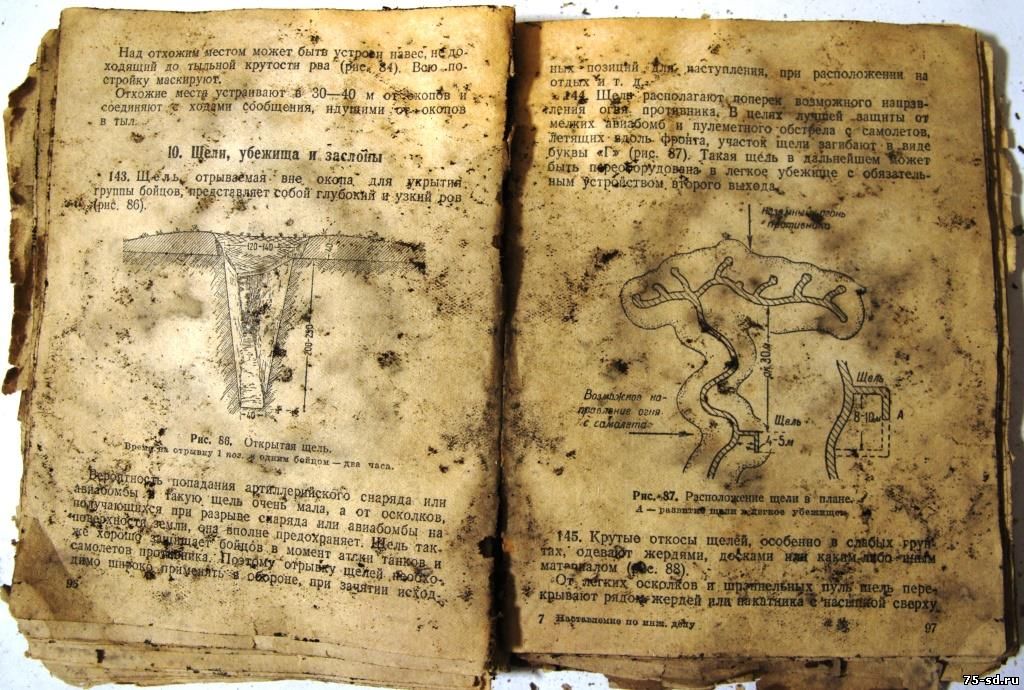 Над отхожим местом может быть устроен навес, не до-
ходящий до тыльной крутости рва (рис. 84). Всю по-
стройку маскируют.
Отхожие места устраивают в 30—40 м от окопов и
соединяют с ходами сообщения, идущими от окопов
в тыл.
10. Щели, убежища и заслоны
143. Щель, отрываемая вне окопа для укрытия
группы бойцов, представляет собой глубокий и узкий ров
(рис. 86).
120-140
200-250
40
Рис. 86. Открытая щель.
Время на отрывку 1 пог. м одним бойцом — два часа.
Вероятность попадания артиллерийского снаряда или
авиабомбы в такую щель очень мала, а от осколков,
получающихся при разрыве снаряда или авиабомбы на
поверхности земли, она вполне предохраняет. Щель так-
же хорошо защищает бойцов в момент атаки танков и
самолетов противника. Поэтому отрывку щелей необхо-
димо широко применять в обороне, при занятии исход-
96
ных позиций для наступления, при расположении на
отдых и т. д.
144. Щель располагают поперек возможного направ-
ления огня противника. В целях лучшей защиты от
мелких авиабомб и пулеметного обстрела с самолетов,
летящих вдоль фронта, участок щели загибают в виде
буквы «Г» (рис. 87). Такая щель в дальнейшем может
быть переоборудована в легкое убежище с обязатель-
ным устройством второго выхода.
Наземный огонь
противника
ок. 30 м
Возможное на-
правление огня
с самолета
Щель
4-5м
Щель
8-10м
А
Рис. 87. Расположение щели в плане.
А — развитие щели в легкое убежище.
145. Крутые откосы щелей, особенно в слабых грун-
тах, одевают жердями, досками или каким-либо иным
материалом (рис. 88).
От легких осколков и шрапнельных пуль щель пере-
крывают рядом жердей или накатника с насыпкой сверху
7 Наставление по инж. делу
97
75-sd.ru